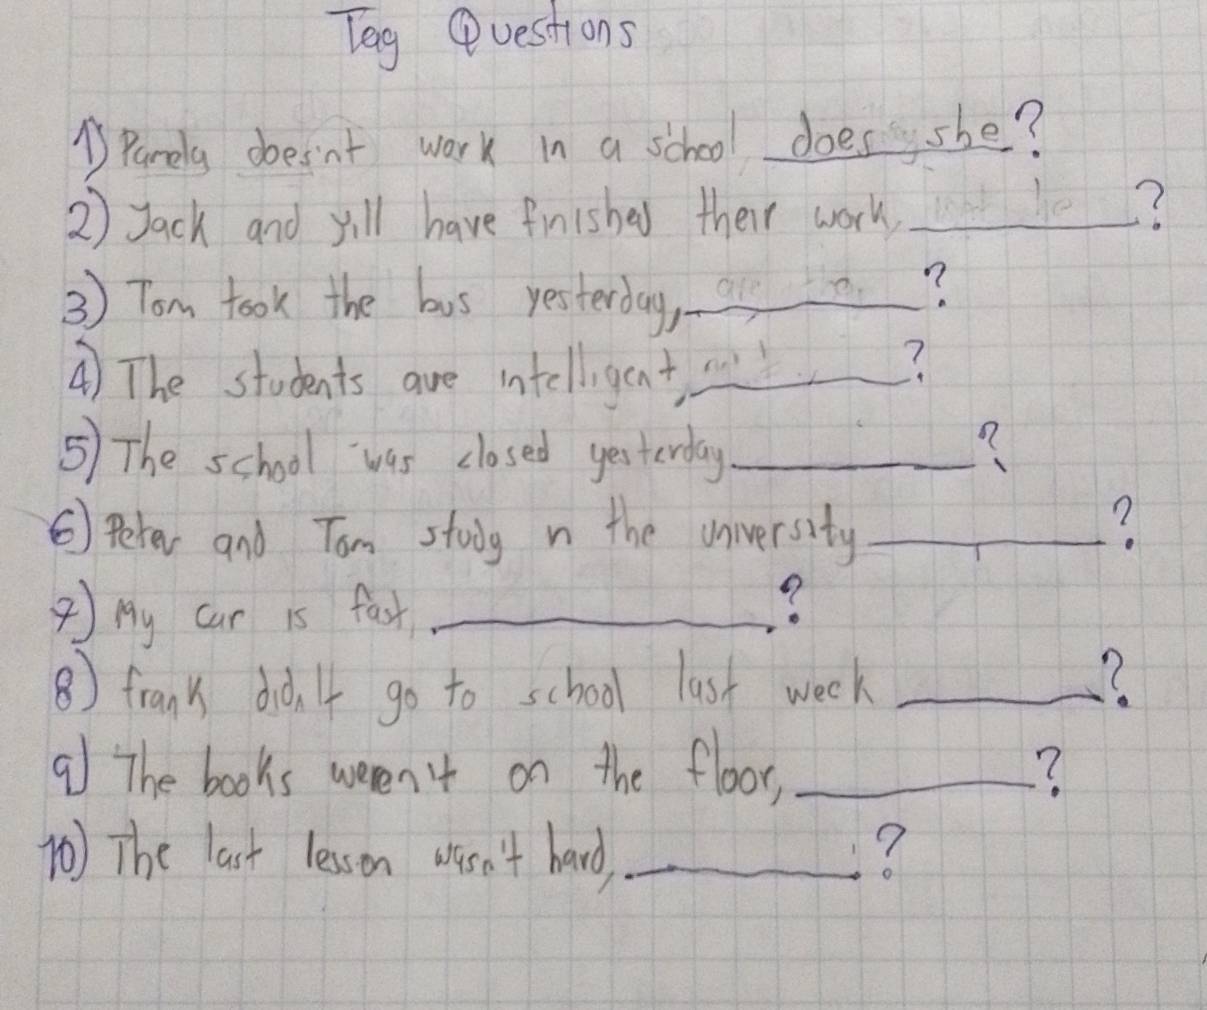 Tag Questions
1) Pamela doesn't work in a school does she?
2) Jack and yill have finished their work, ________?
3) Tom took the bus yesterday, ________?
4) The students are intelligent, ________?
5) The school was closed yesterday ________?
6) Peter and Tom study n the university ________?
7) My car is fast, ________?
8) frank didn't go to school last week ________?
9) The books weren't on the floor, ________?
10) The last lesson wasn't hard, ________?